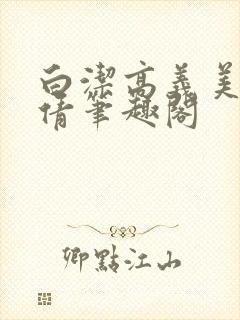 白潔高義美
倩筆趣閣
卿點江山